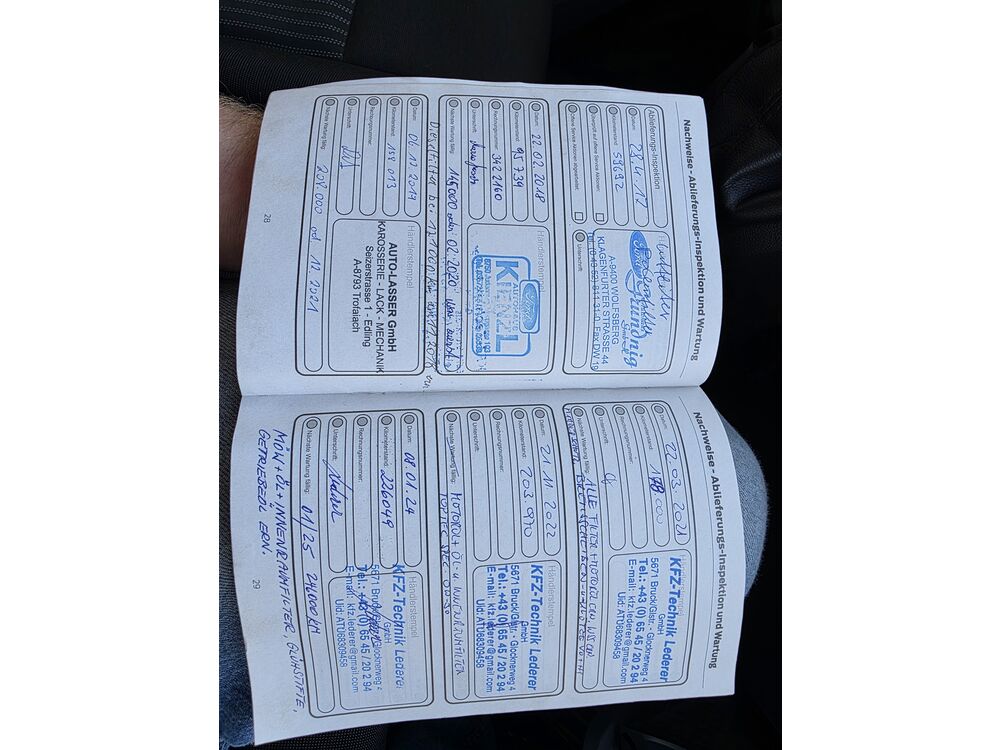 Nachweise - Ablieferungs-Inspektion und Wartung
Ablieferungs-Inspektion
Datum: 28.4.17
Kilometerstand: 59692
Überprüft auf offene Service Aktionen:
Offene Service Aktionen abgearbeitet:
A-9400 WOLFSBERG
KLAGENFURTER STRASSE 44
Unterschrift:
Datum: 22.02.2018
Kilometerstand: 95.734
Rechnungsnummer: 3422160
Unterschrift:
Nächste Wartung fällig: 145000 oder 02.2020
Händlerstempel
Ford
AUTOHAUS
KIENZL
Dieselfilter bei 121000 km
Datum: 06.12.2019
Kilometerstand: 158 013
Rechnungsnummer:
Unterschrift:
Nächste Wartung fällig: 208.000 od. 12.2021
AUTO-LASSER GmbH
KAROSSERIE - LACK - MECHANIK
Seizerstrasse 1 - Edling
A-8793 Trofaiach
28
Nachweise - Ablieferungs-Inspektion und Wartung
Datum: 22.03.2021
Kilometerstand:
Rechnungsnummer:
Unterschrift:
Nächste Wartung fällig: ALLE FILTER + MOTORÖL
KFZ-Technik Lederer
GmbH
5671 Bruck/Glstr. - Glocknerweg 4
Tel.: +43 (0) 65 45 / 20 2 94
E-mail: kfz.lederer@gmail.com
Uid: ATU68309458
Datum: 21.11.2022
Kilometerstand: 203.970
Rechnungsnummer:
Unterschrift:
Nächste Wartung fällig: MOTORÖL + ÖL- u. INNENRAUMFILTER
Händlerstempel
KFZ-Technik Lederer
GmbH
5671 Bruck/Glstr. - Glocknerweg 4
Tel.: +43 (0) 65 45 / 20 2 94
E-mail: kfz.lederer@gmail.com
Uid: ATU68309458
Datum: 08.01.24
Kilometerstand: 226049
Rechnungsnummer:
Unterschrift:
Nächste Wartung fällig: 01/25 246000 KM
Händlerstempel
KFZ-Technik Lederer
GmbH
5671 Bruck/Glstr. - Glocknerweg 4
Tel.: +43 (0) 65 45 / 20 2 94
E-mail: kfz.lederer@gmail.com
Uid: ATU68309458
MÖW + ÖL + INNENRAUMFILTER, GLÜHSTIFTE,
GETRIEBEÖL ERN.
29